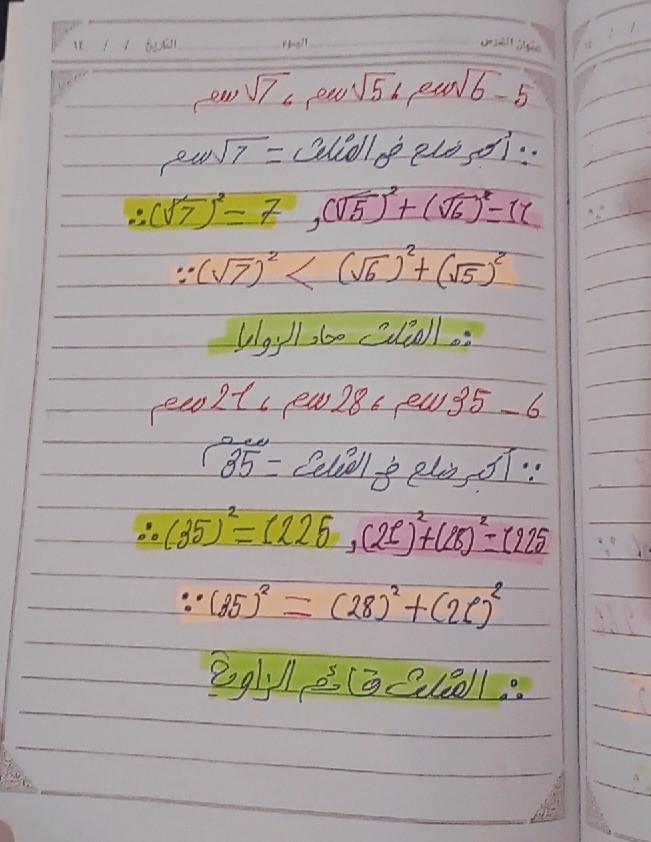 عنوان الدرس اليوم التاريخ / / ١٤
5 - √6 سم ، √5 سم ، √7 سم
∵ أكبر ضلع في المثلث = √7 سم
∴ (√7)² = 7 , (√5)² + (√6)² = 11
∵ (√7)² < (√6)² + (√5)²
∴ المثلث حاد الزوايا
6 - 35 سم ، 28 سم ، 21 سم
∵ أكبر ضلع في المثلث = 35 سم
∴ (35)² = 1225 , (21)² + (28)² = 1225
∵ (35)² = (28)² + (21)²
∴ المثلث قائم الزاوية